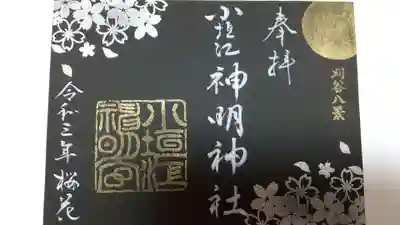 奉拝
刈谷八景
小垣江神明神社
小垣江
神明宮
令和三年桜花